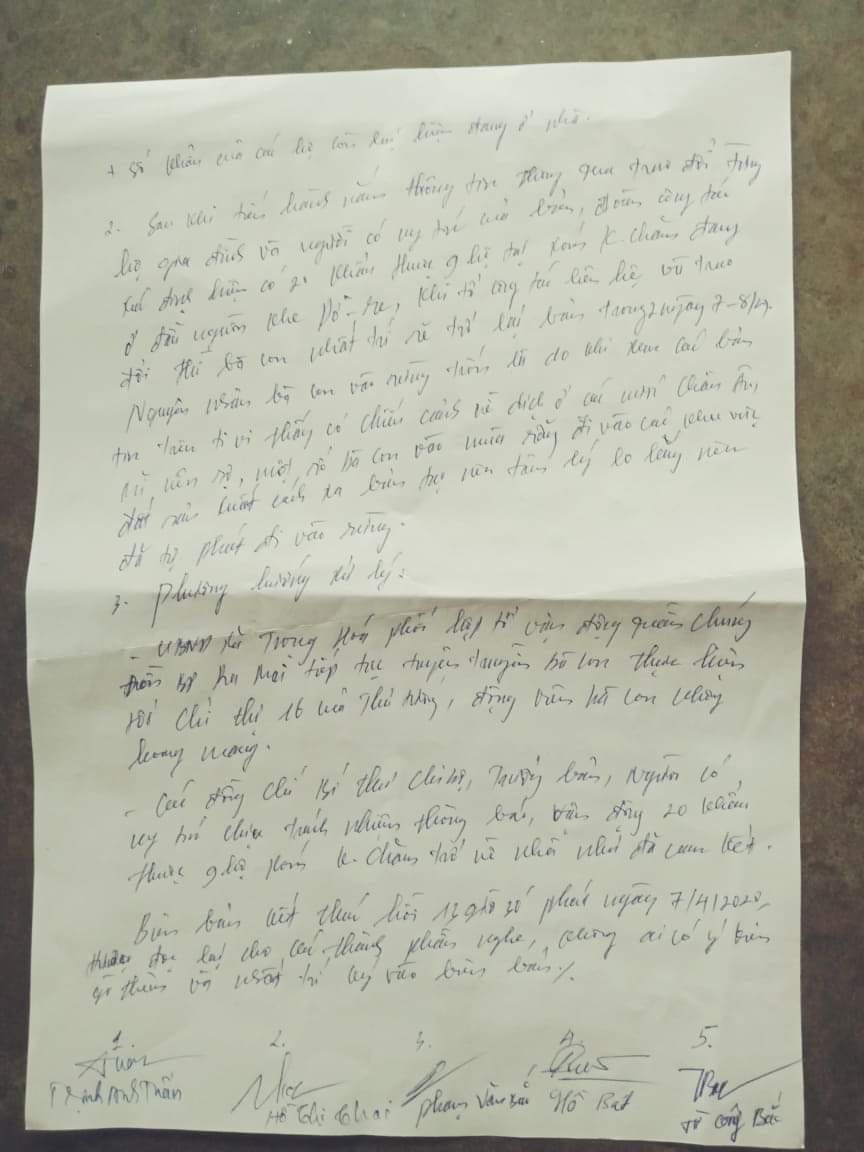 + Số khẩu của các hộ còn lại hiện đang ở nhà.
2. Sau khi tiến hành nắm thông tin thông qua trao đổi từng
hộ gia đình và người có uy tín của bản, đoàn công tác
xác định hiện có 20 khẩu thuộc 9 hộ tại xóm K. Chăm đang
ở đầu nguồn khe, khi tổ công tác liên hệ và trao
đổi thì bà con nhất trí sẽ trở lại bản trong 2 ngày 7-8/4.
Nguyên nhân bà con vào rừng trốn là do khi xem các bản
tin trên ti vi thấy có chiến cảnh về dịch ở các nước Châu Âu,
Mĩ, nên sợ, một số bà con vào mùa rẫy đi vào các khu vực
đất sản xuất cách xa bản nên tâm lý lo lắng nên
đã tự phát đi vào rừng.
3. Phương hướng xử lý:
- UBND xã Trọng Hoá phối hợp tổ vận động quần chúng
đồn BP Ra Mai tiếp tục tuyên truyền bà con thực hiện
tốt Chỉ thị 16 của Thủ tướng, động viên bà con không
hoang mang.
- Các đồng chí Bí thư chi bộ, Trưởng bản, Người có
uy tín chịu trách nhiệm thông báo, vận động 20 khẩu
thuộc 9 hộ xóm K. Chăm trở về như đã cam kết.
Biên bản kết thúc hồi 13 giờ 30 phút ngày 7/4/2020,
đọc lại cho các thành phần nghe, không ai có ý kiến
gì thêm và nhất trí ký vào biên bản./.
1. 2. 3. 4. 5.
Trịnh Anh Tuấn Hồ Thị Thai Phạm Văn Bắc Hồ Bạt Công Bắc